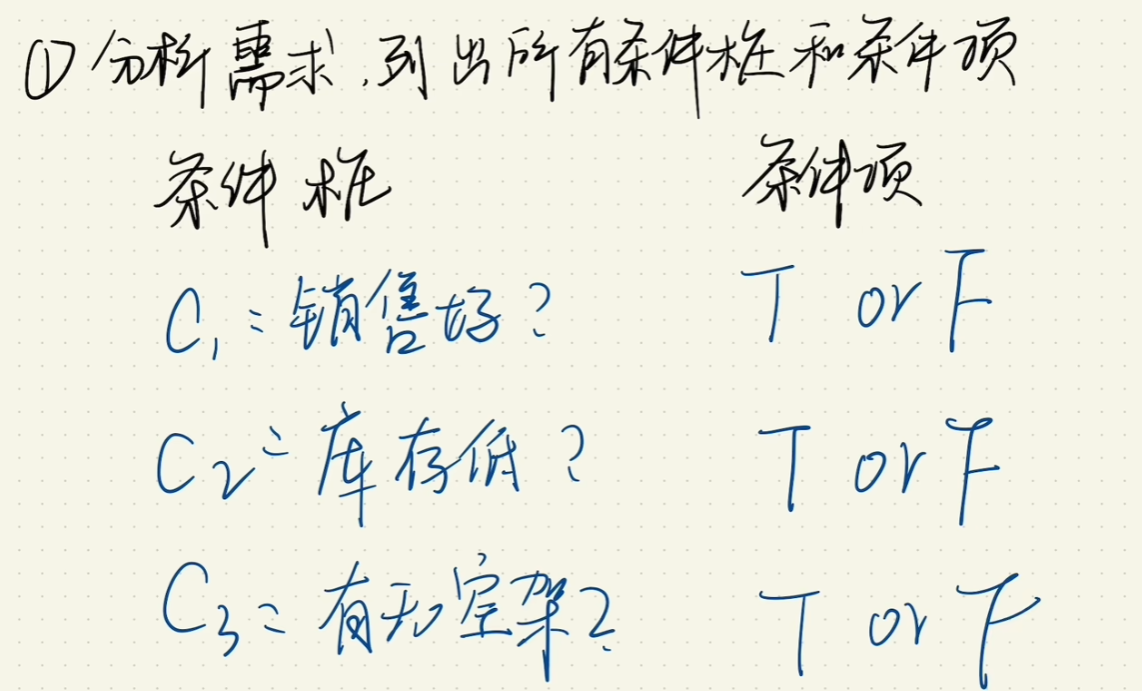 ① 分析需求,列出所有条件桩和条件项
条件桩 条件项
C1:销售好? T or F
C2:库存低? T or F
C3:有无空架? T or F